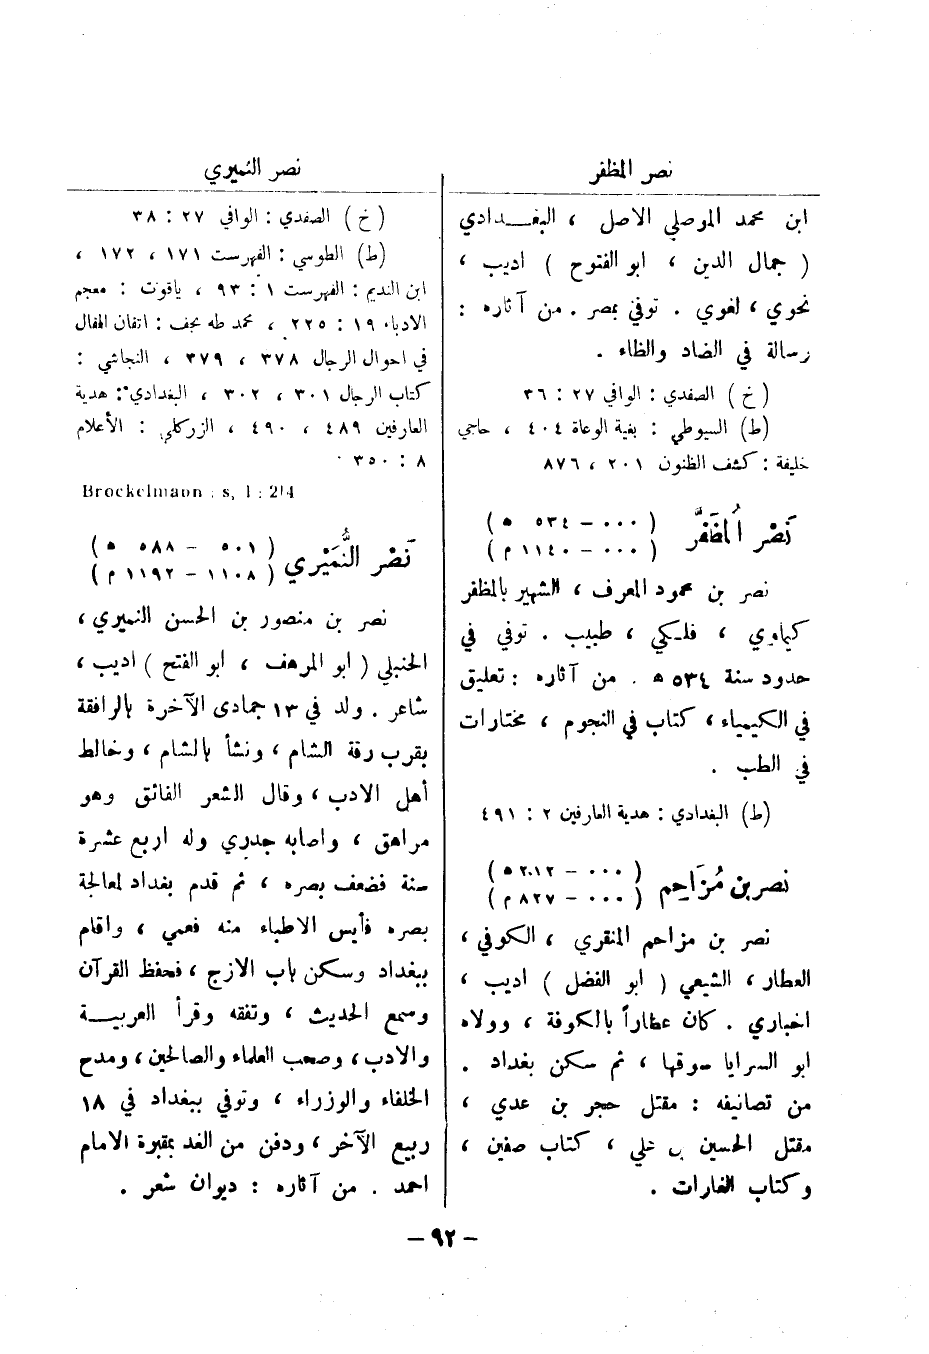 نصر المظفر
ابن محمد الموصلي الاصل ، البغـدادي
( جمال الدين ، ابو الفتوح ) اديب ،
نحوي ، لغوي . توفي بمصر . من آثاره :
رسالة في الضاد والظاء .
( خ ) الصفدي : الوافي ٢٧ : ٣٦
(ط) السيوطي : بغية الوعاة ٤٠٤ ، حاجي
خليفة : كشف الظنون ٢٠١ ، ٨٧٦
نَصْر المُظَفَّر ( ٠٠٠ – ٥٣٤ ه )
( ٠٠٠ – ١١٤٠ م )
نصر بن محمود المعرف ، الشهير بالمظفر
كيماوي ، فلـكي ، طبيب . توفي في
حدود سنة ٥٣٤ ه . من آثاره : تعليق
في الكيمياء ، كتاب في النجوم ، مختارات
في الطب .
(ط) البغدادي : هدية العارفين ٢ : ٤٩١
نصر بن مُزَاحِم ( ٠٠٠ – ٢١٢ ه )
( ٠٠٠ – ٨٢٧ م )
نصر بن مزاحم المنقري ، الكوفي ،
العطار ، الشيعي ( ابو الفضل ) اديب ،
اخباري . كان عطاراً بالكوفة ، وولاه
ابو السرايا سوقها ، ثم سكن بغداد .
من تصانيفه : مقتل حجر بن عدي ،
مقتل الحسين بن علي ، كتاب صفين ،
وكتاب الغارات .
نصر النميري
( خ ) الصفدي : الوافي ٢٧ : ٣٨
(ط) الطوسي : الفهرست ١٧١ ، ١٧٢ ،
ابن النديم : الفهرست ١ : ٩٣ ، ياقوت : معجم
الادباء ١٩ : ٢٢٥ ، محمد طه نجف : اتقان المقال
في احوال الرجال ٣٧٨ ، ٣٧٩ ، النجاشي :
كتاب الرجال ٣٠١ ، ٣٠٢ ، البغدادي : هدية
العارفين ٤٨٩ ، ٤٩٠ ، الزركلي : الأعلام
٨ : ٣٥٠
Brockelmann : s, I : 214
نَصْر النُّمَيْري ( ٥٠١ – ٥٨٨ ه )
( ١١٠٨ – ١١٩٢ م )
نصر بن منصور بن الحسن النميري ،
الحنبلي ( ابو المرهف ، ابو الفتح ) اديب ،
شاعر . ولد في ١٣ جمادى الآخرة بالرافقة
بقرب رقة الشام ، ونشأ بالشام ، وخالط
أهل الادب ، وقال الشعر الفائق وهو
مراهق ، واصابه جدري وله اربع عشرة
سنة فضعف بصره ، ثم قدم بغداد لمعالجة
بصره فأيس الاطباء منه فعمي ، واقام
ببغداد وسكن باب الازج ، فحفظ القرآن
وسمع الحديث ، وتفقه وقرأ العربيـة
والادب ، وصحب العلماء والصالحين ، ومدح
الخلفاء والوزراء ، وتوفي ببغداد في ١٨
ربيع الآخر ، ودفن من الغد بمقبرة الامام
احمد . من آثاره : ديوان شعر .
– ٩٢ –